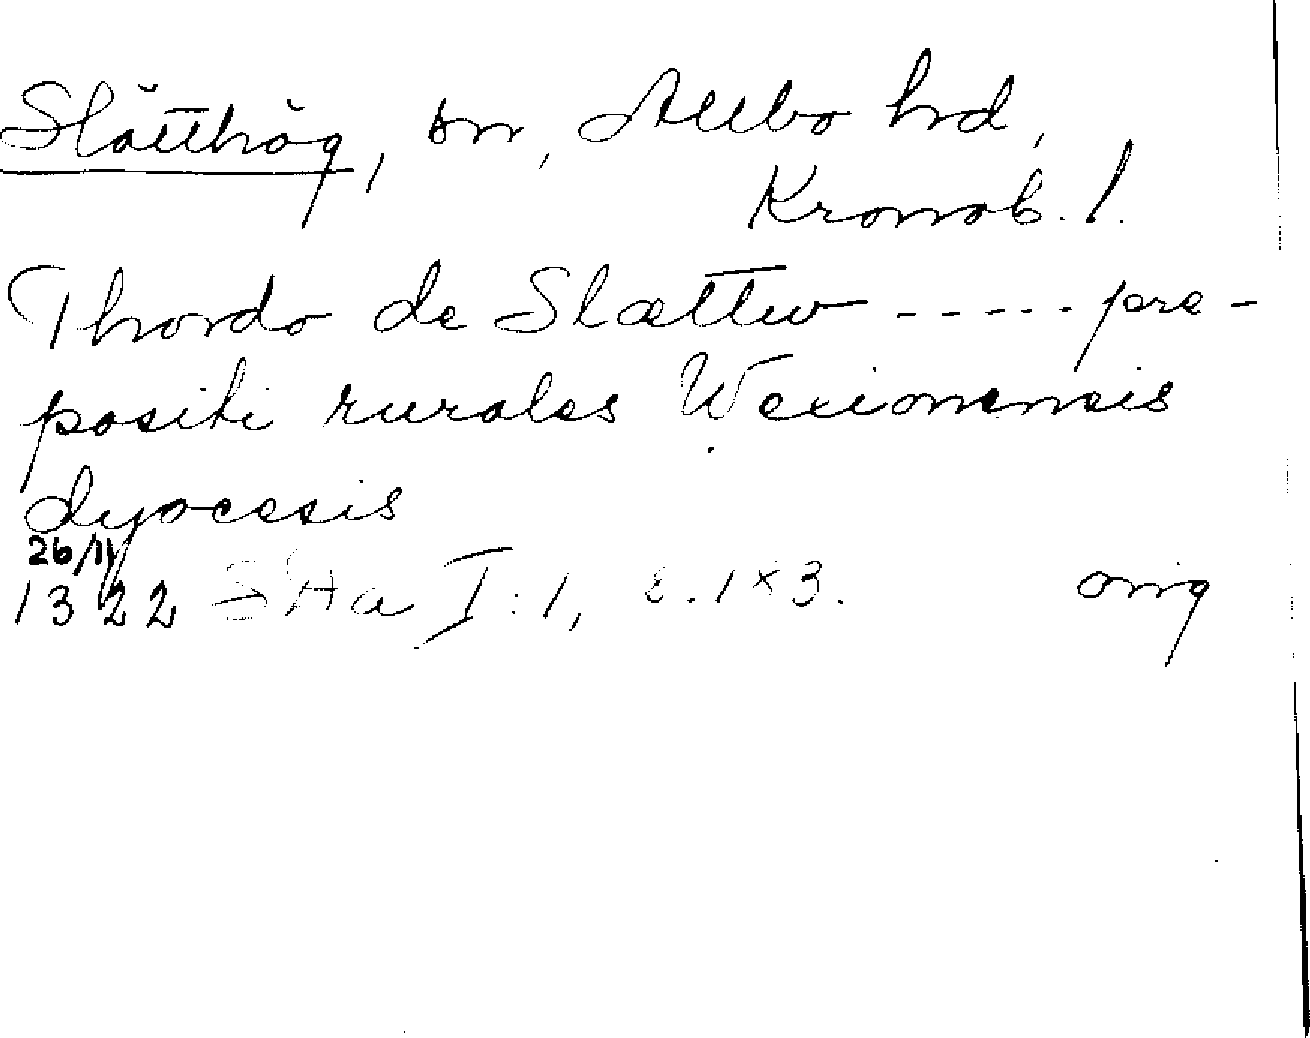 Slätthög, sn, Allbo hd,
Kronob. l.
Thordo de Slættw ----- pre-
positi rurales Wexionensis
dyocesis
26/11
1322 SHa I:1, s. 1x3. orig